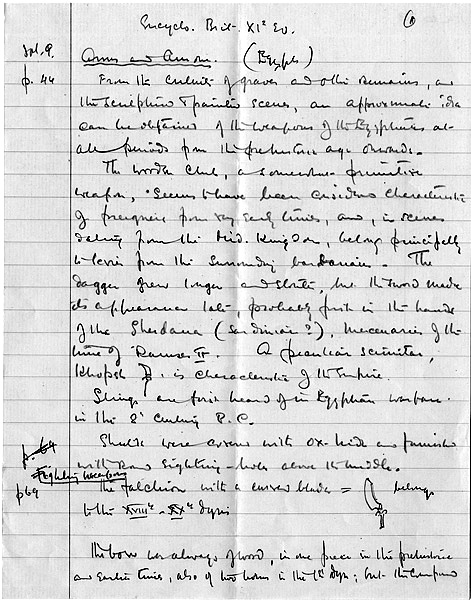 Encyclo. Brit. XIe Ed.
①
Vol. 9.
Arms and Armour. (Egypt)
p. 44
From the contents of graves and other remains, and
the sculptured & painted scenes, an approximate idea
can be obtained of the weapons of the Egyptians at
all periods from the prehistoric age onwards.
The wooden club, a somewhat primitive
weapon, seems to have been considered characteristic
of foreigners from very early times, and, in scenes
dating from the Mid. Kingdom, belong principally
to levies from the surrounding barbarians. The
dagger grew longer and stouter, but the sword made
its appearance late, probably first in the hands
of the Sherdana (Sardinian?), mercenaries of the
time of Rameses II. A peculiar scimitar,
Khopsh, is characteristic of the Empire.
Slings are first heard of in Egyptian warfare
in the 8th Century B.C.
Shields were covered with ox-hide and furnished
with round sighting-holes above the middle.
p. 64
Fighting weapons
p 69
The falchion with a curved blade = belongs
to the XVIIIth - XXth dyns
The bow was always of wood, in one piece in the prehistoric
and earlier times, also of two horns in the 1st dyn; but the compound